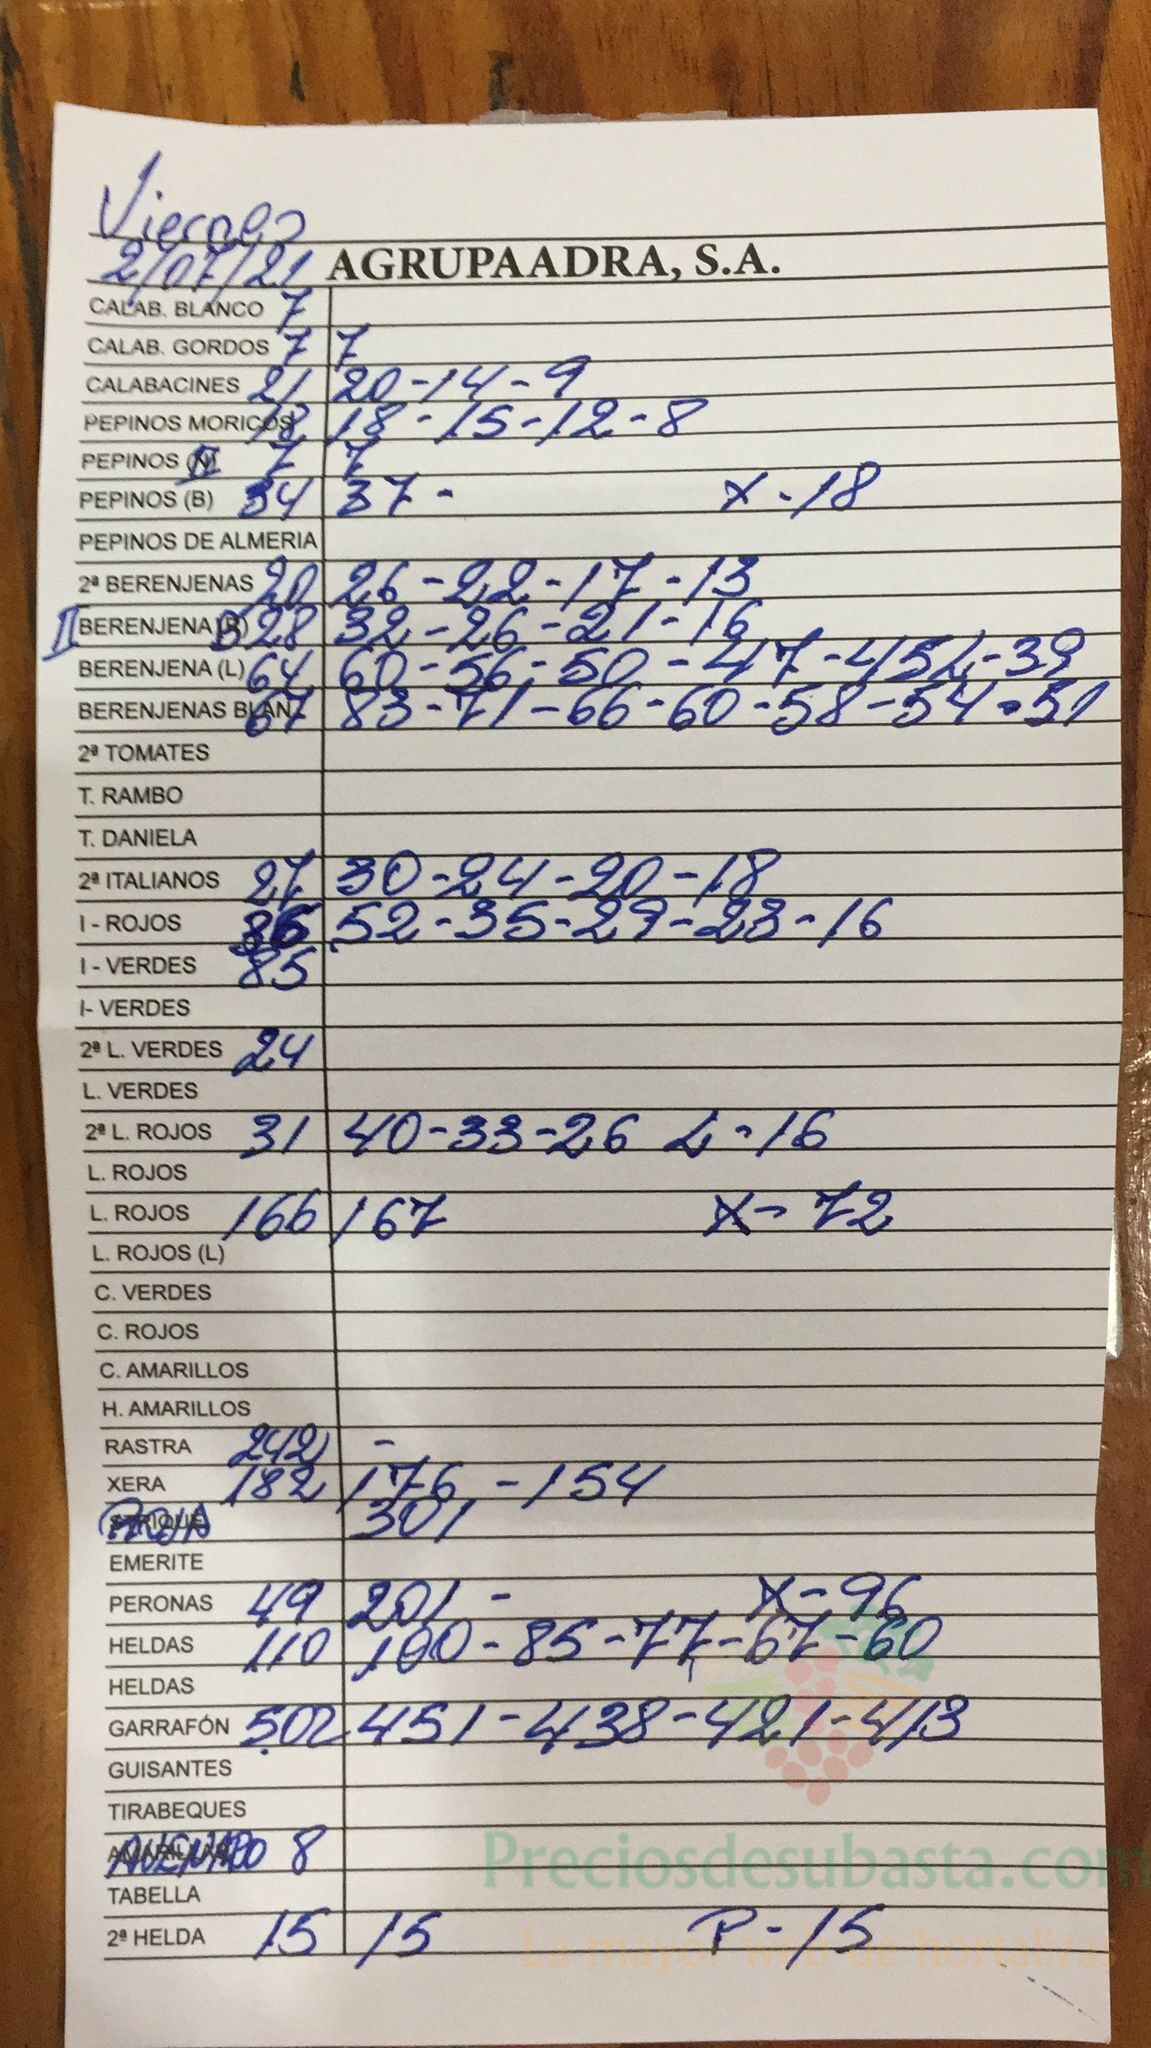 Viernes
2/07/21 AGRUPAADRA, S.A.
CALAB. BLANCO 7
CALAB. GORDOS 7 7
CALABACINES 21 20-14-9
PEPINOS MORICOS 18 18-15-12-8
PEPINOS 7 7
PEPINOS (B) 34 37- X-18
PEPINOS DE ALMERIA
2ª BERENJENAS 20 26-22-17-13
II BERENJENA B 28 32-26-21-16
BERENJENA (L) 64 60-56-50-47-45L-39
BERENJENAS BLAN 67 83-71-66-60-58-54-51
2ª TOMATES
T. RAMBO
T. DANIELA
2ª ITALIANOS 27 30-24-20-18
I - ROJOS 52-35-29-23-16
I - VERDES 85
I- VERDES
2ª L. VERDES 24
L. VERDES
2ª L. ROJOS 31 40-33-26 L-16
L. ROJOS
L. ROJOS 166 167 X-72
L. ROJOS (L)
C. VERDES
C. ROJOS
C. AMARILLOS
H. AMARILLOS
RASTRA 242 -
XERA 182 176-154
301
EMERITE
PERONAS 49 201- X-96
HELDAS 110 100-85-77-67-60
HELDAS
GARRAFÓN 502 451-438-421-413
GUISANTES
TIRABEQUES
8
Preciosdesubasta.com
TABELLA
2ª HELDA 15 15 P-15
La mayor web de hortalizas